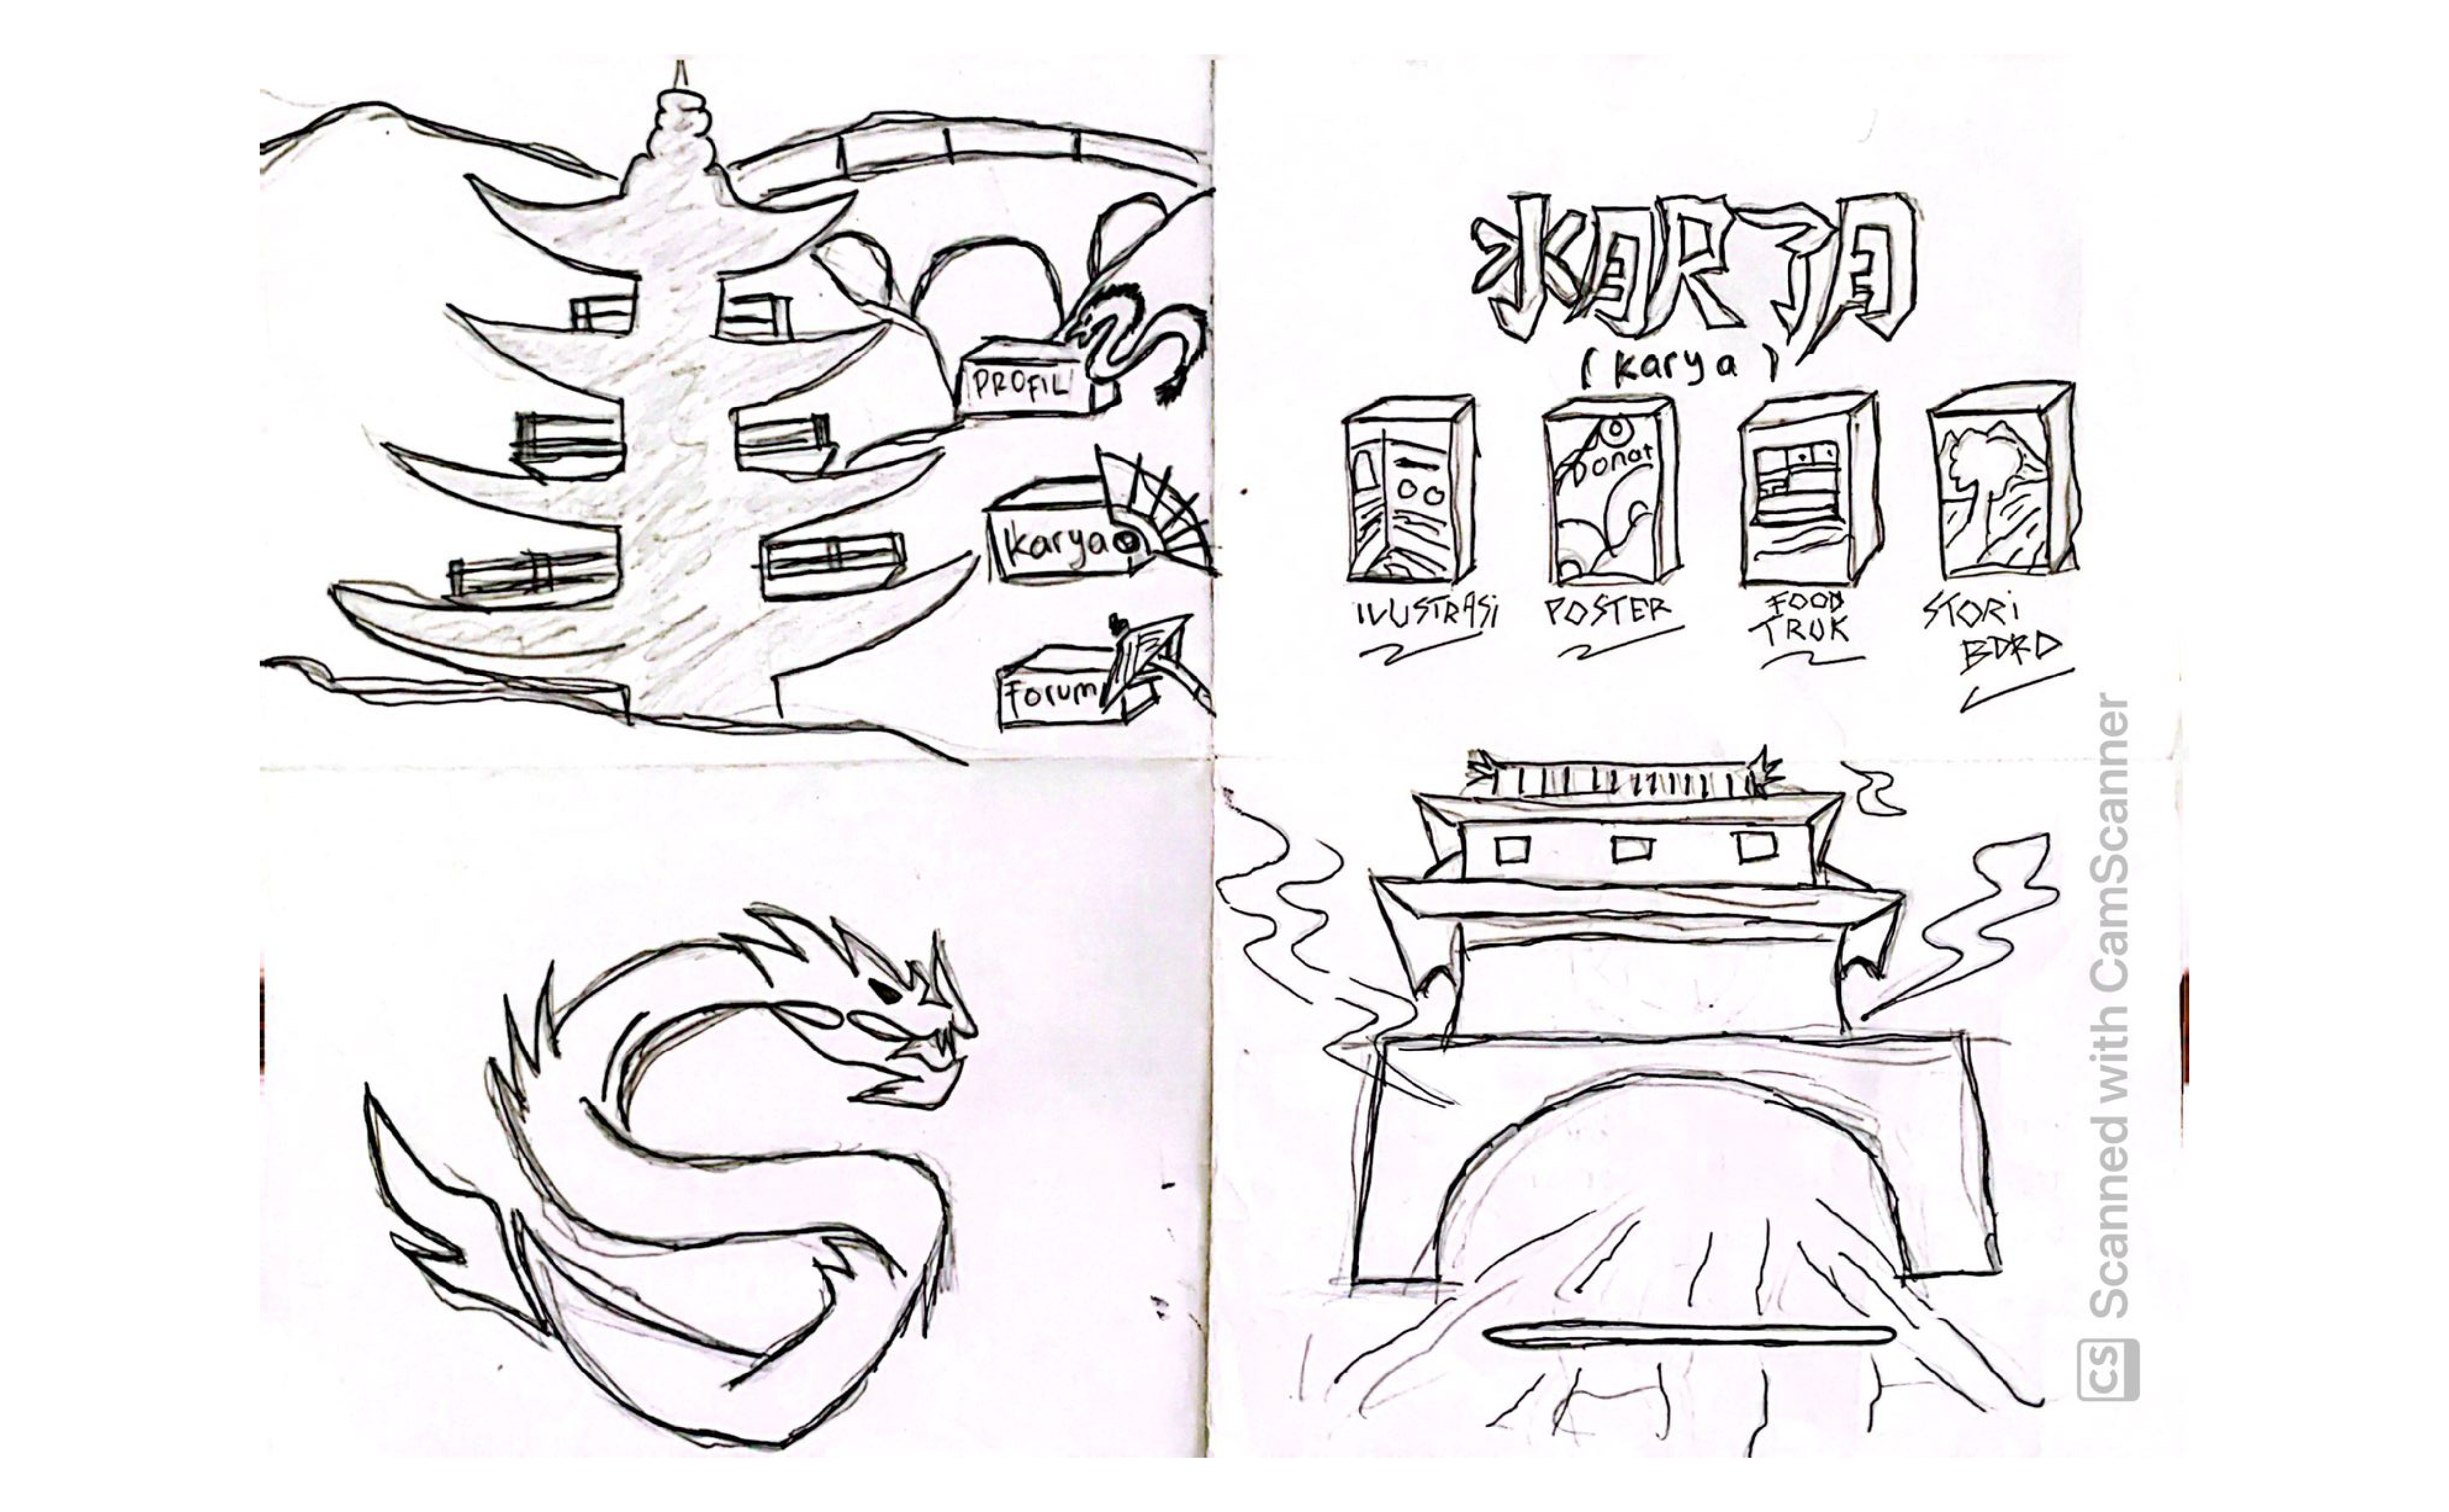 PROFIL
karya
Forum
(karya)
Donat
ILUSTRASi
POSTER
FOOD
TRUK
STORi
BORD
CS Scanned with CamScanner